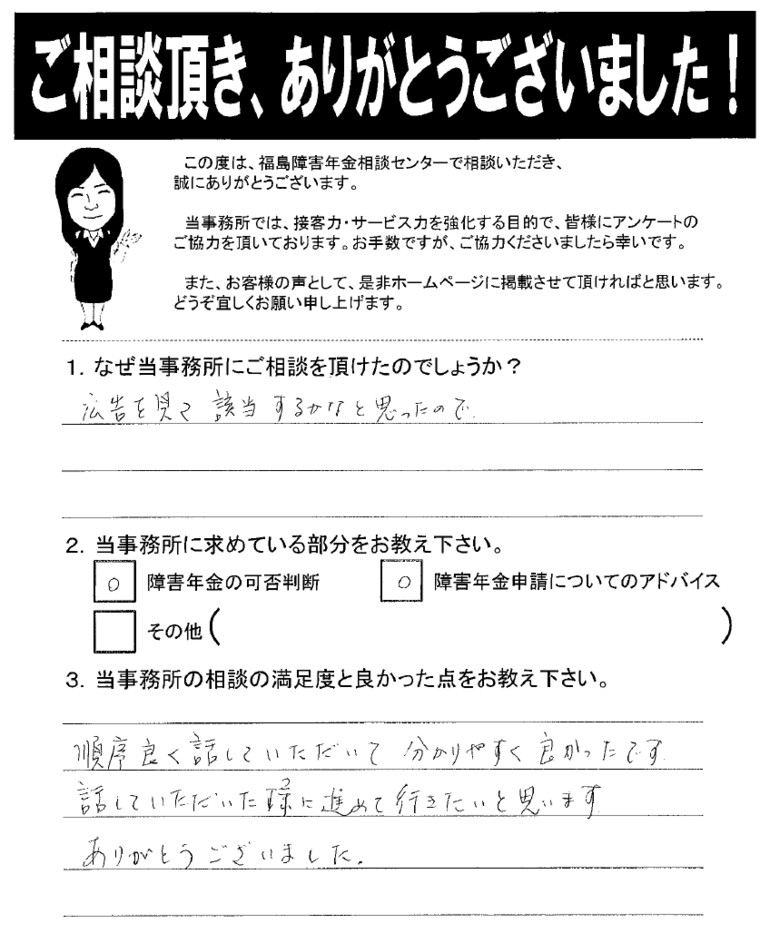 ご相談頂き、ありがとうございました！
この度は、福島障害年金相談センターで相談いただき、
誠にありがとうございます。
当事務所では、接客力・サービス力を強化する目的で、皆様にアンケートの
ご協力を頂いております。お手数ですが、ご協力くださいましたら幸いです。
また、お客様の声として、是非ホームページに掲載させて頂ければと思います。
どうぞ宜しくお願い申し上げます。
1. なぜ当事務所にご相談を頂けたのでしょうか？
広告を見て 該当するかなと思ったので
2. 当事務所に求めている部分をお教え下さい。
○ 障害年金の可否判断 ○ 障害年金申請についてのアドバイス
その他（ ）
3. 当事務所の相談の満足度と良かった点をお教え下さい。
順序良く話していただいて 分かりやすく良かったです
話していただいた様に進めて行きたいと思います
ありがとうございました。